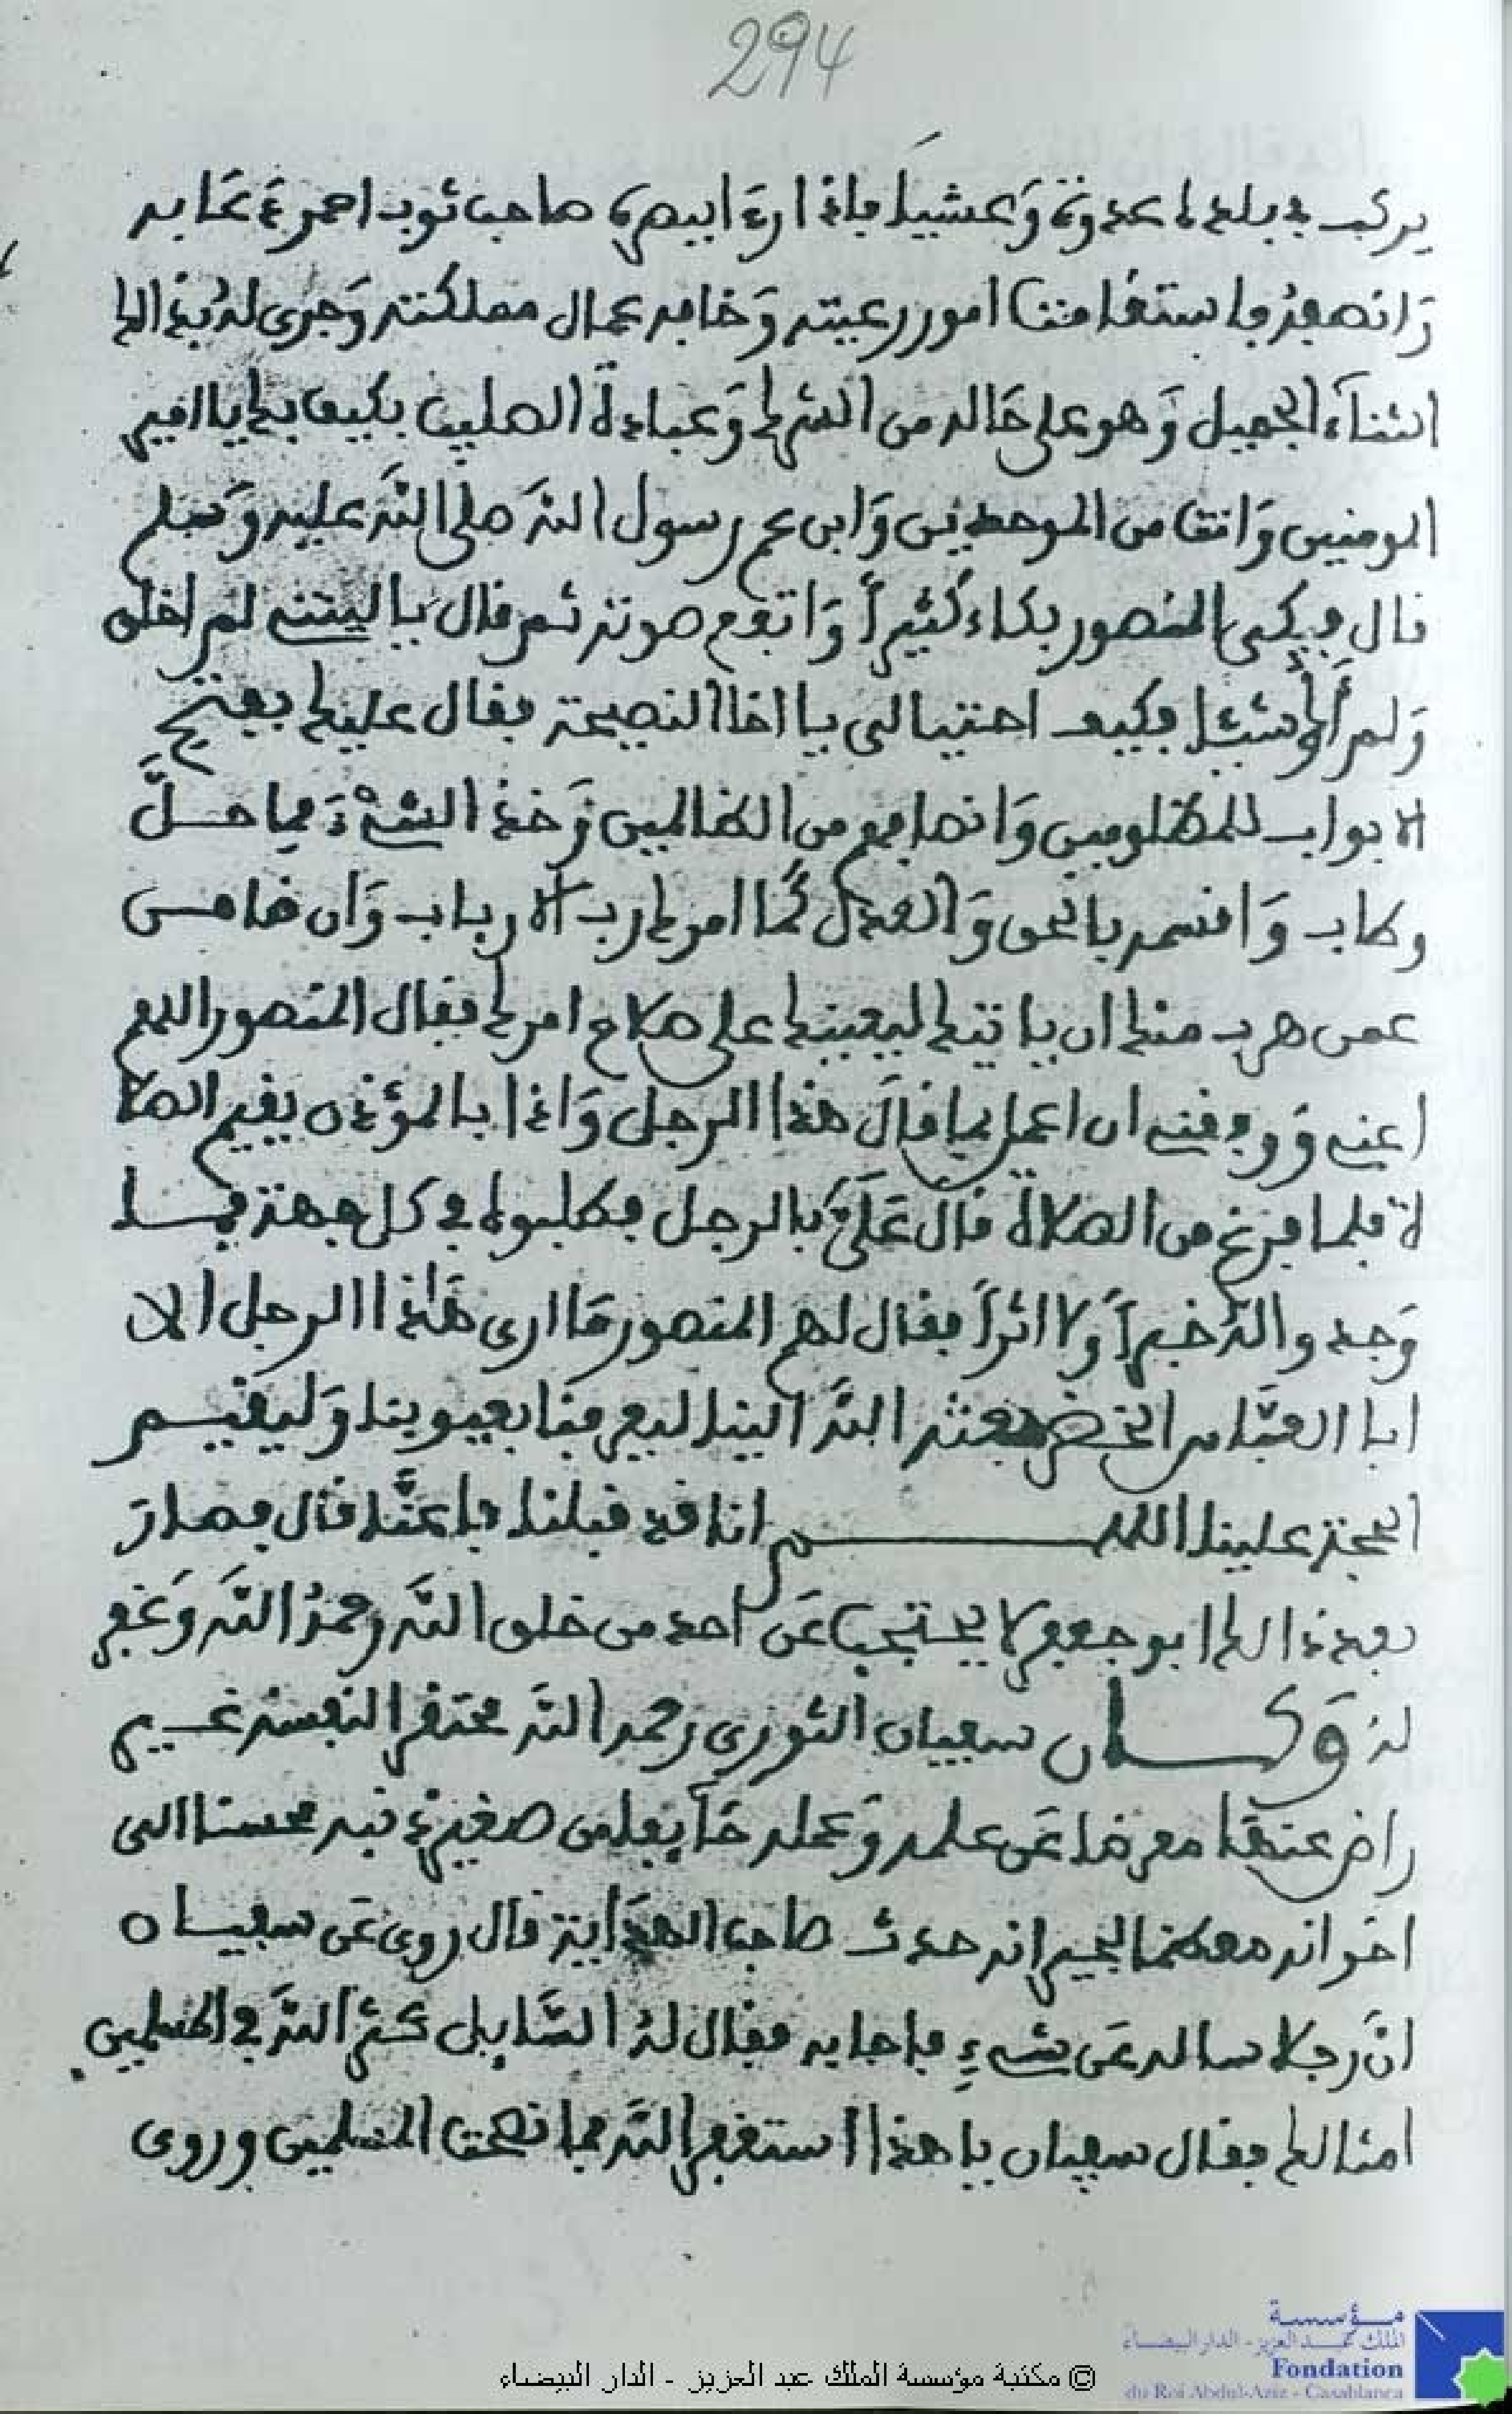 294
يركب في بلدك غدوة وعشيا فإذا رءا بيصره صاحب ثوب احمر عابه
وانصفه فاستقامت امور رعيته وخابه عمال مملكته وجرى له بذالك
الثناء الجميل وهو على حاله من الشرك وعبادة الصليب بكيف بك يا امير
المومنين وانت من الموحدين وابن عم رسول الله صلى الله عليه وسلم
قال فبكى المنصور بكاء كثيرا وارتفع صوته ثم قال يا ليتني لم اخلق
ولم شيئا فكيف احتيالي يا اخا النصيحة فقال عليك بفتح
الابواب للمظلومين وانصافهم من الظالمين وخذ الشيء مما حل
وطاب واقسمه بالحق والعدل كما امرك رب الارباب وان ضامن
عمن هرب منك ان ياتيك ليعينك على صلاح امرك فقال المنصور اللهم
اعني ووفقني ان اعمل بما قال هذا الرجل واذا بالمؤذن يقيم الصلا
لاة فلما فرغ من الصلاة قال علي بالرجل فطلبوه في كل جهة فما
وجدوا له خبرا ولا اثرا فقال لهم المنصور ما ارى هذا الرجل الا
ابا العباس الخضر بعثه الله الينا ليعرفنا بعيوبنا وليقيم
الحجة علينا اللهم انا قد قبلنا فاعنا قال فصار
بعد ذالك ابو جعفر لا يحتجب عن احد من خلق الله رحمه الله وغفر
له وكان سفيان الثوري رحمه الله محتقر النفسه غير
راض عنها معرضا عن علمه وعمله خايفا من صغير ذنبه محسنا الى
اخوانه معظما لجيرانه حدث صاحب الهداية قال روي عن سفيان
ان رجلا ساله عن شيء فاجابه فقال له السايل كثر الله في المسلمين
امثالك فقال سفيان يا هذا استغفر الله مما نصحت المسلمين وروى
مؤسسة
الملك عبد العزيز - الدار البيضاء
Fondation
du Roi Abdul-Aziz - Casablanca
© مكتبة مؤسسة الملك عبد العزيز - الدار البيضاء